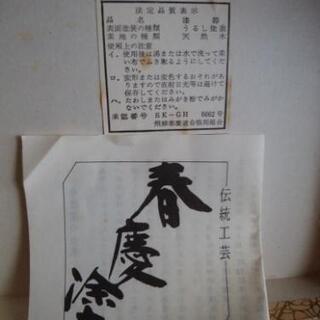 法定品質表示
品名 漆器
表面塗装の種類 うるし塗装
素地の種類 天然木
使用上の注意
イ、使用後は湯または水で洗って柔
い布でふき取るようにしてください。
ロ、変形または変色するおそれがあ
りますので直射日光等は避けて
ください。
ハ、たわしまたはみがき粉でみがか
ないでください。
承認番号 BK-GH 6002号
伝統工芸
春慶塗